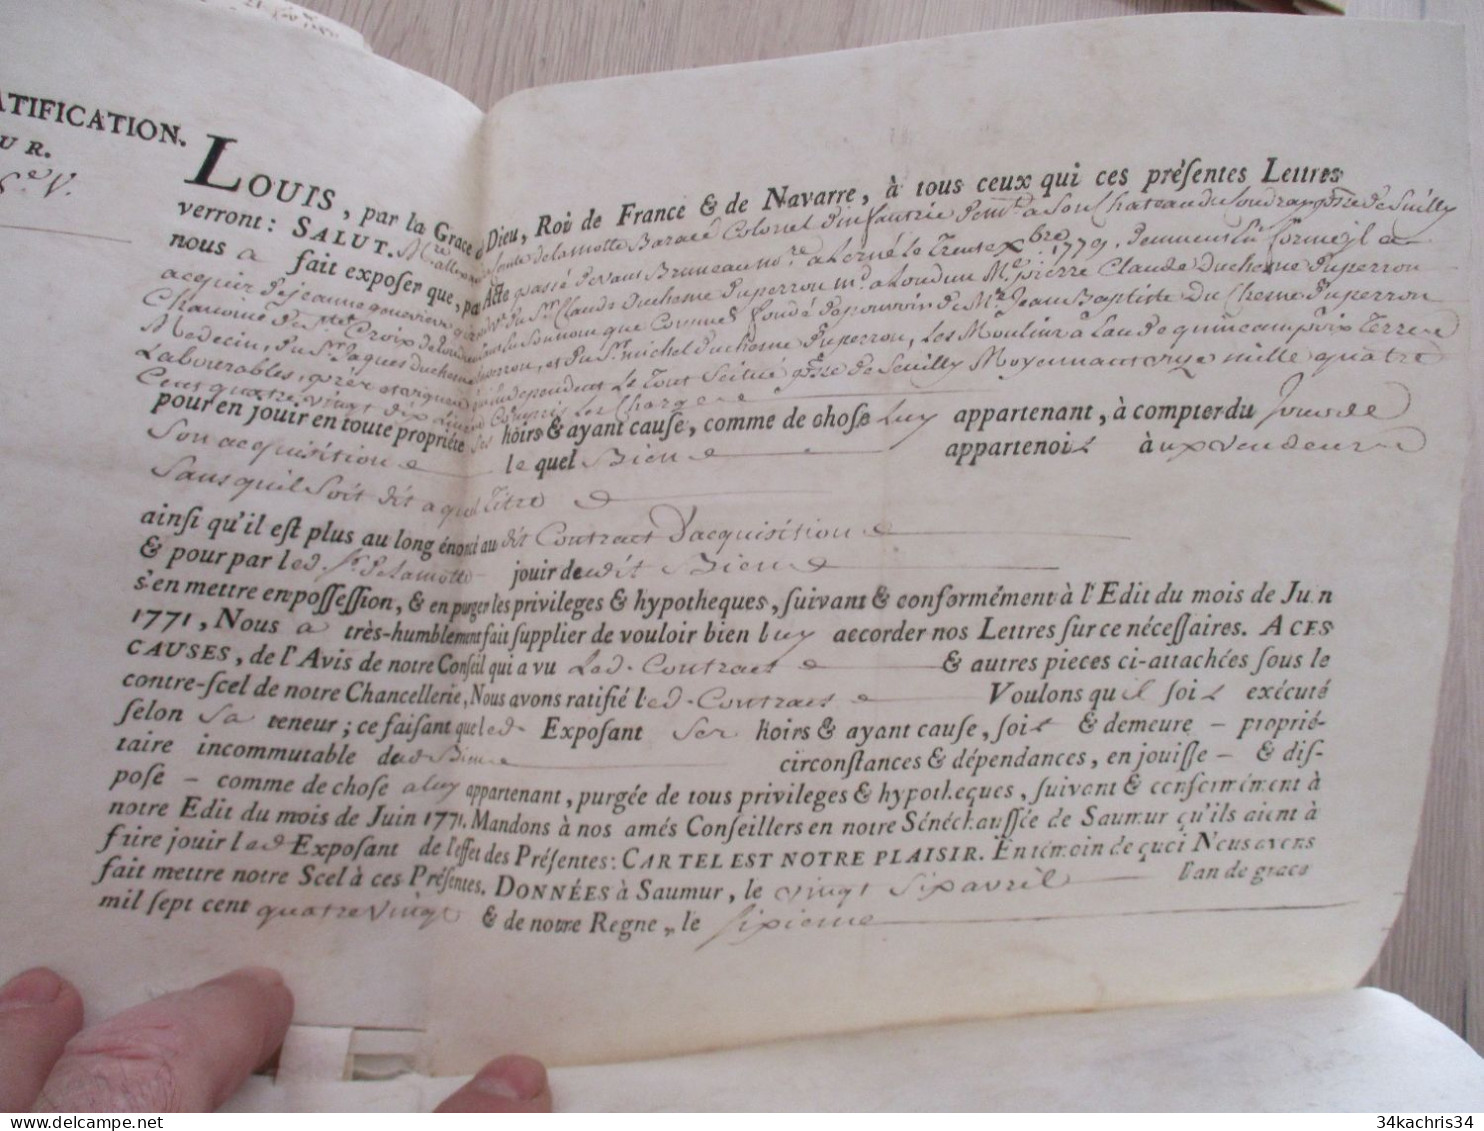 ATIFICATION.
UR.
LOUIS, par la Grace Dieu, Roi de France & de Navarre, à tous ceux qui ces préſentes Lettres
verront: SALUT. de la motte Baracé Colonel d'infanterie demt. a Son Chateau du Coudray psse. de Seuilly
nous a fait expoſer que, par Acte passé devant Bruneau nore. a Lerné le Trente Xbre. 1779.
acquis de jeanne genevieve du Sr. Claude Duchesne Duperron md. a Loudun Me. pierre Claude Duchesne Duperron
Chanoine du Ste. Croix de Loudun fondé de pouvoir de Me. Jean Baptiste Du Chesne Duperron
Medecin, du Sr. Jaques Duchesne Duperron, et du Sr. michel Duchesne Duperron, Les Moulins à Eau de quincampoix Terre
Labourables, prez et vignes en dependent Le Tout Scitué psse. de Seuilly Moyennant onze mille quatre
Cent quatre vingt dix Livres Compris Les Charges
pour en jouir en toute propriété ses hoirs & ayant cauſe, comme de choſe Luy appartenant, à compter du Jour de
Son acquisition le quel Bien appartenoit à ux vendeurs
Sans quil Soit dit a quel Titre
ainſi qu'il eſt plus au long énoncé au dit Contract D'acquisition
& pour par led. Sr. De Lamotte jouir dudit Bien
s'en mettre en poſſeſſion, & en purger les privileges & hypotheques, ſuivant & conformément à l'Edit du mois de Juin
1771, Nous a très-humblement fait ſupplier de vouloir bien luy accorder nos Lettres ſur ce néceſſaires. A CES
CAUSES, de l'Avis de notre Conſeil qui a vu Led. Contract & autres pieces ci-attachées ſous le
contre-ſcel de notre Chancellerie, Nous avons ratifié led. Contract Voulons qu'il ſoit exécuté
ſelon sa teneur; ce faiſant que led. Expoſant Ses hoirs & ayant cauſe, ſoit & demeure – proprié-
taire incommutable dud. Bien circonſtances & dépendances, en jouiſſe – & diſ-
poſe – comme de choſe a luy appartenant, purgée de tous privileges & hypotheques, ſuivant & conformément à
notre Edit du mois de Juin 1771. Mandons à nos amés Conſeillers en notre Sénéchauſſée de Saumur qu'ils aient à
faire jouir led Expoſant de l'effet des Préſentes: CAR TEL EST NOTRE PLAISIR. En témoin de quoi Nous avons
fait mettre notre Scel à ces Préſentes. DONNÉES à Saumur, le vingt Six avril l'an de grace
mil ſept cent quatre vingt & de notre Regne, le ſixieme
34kachris34